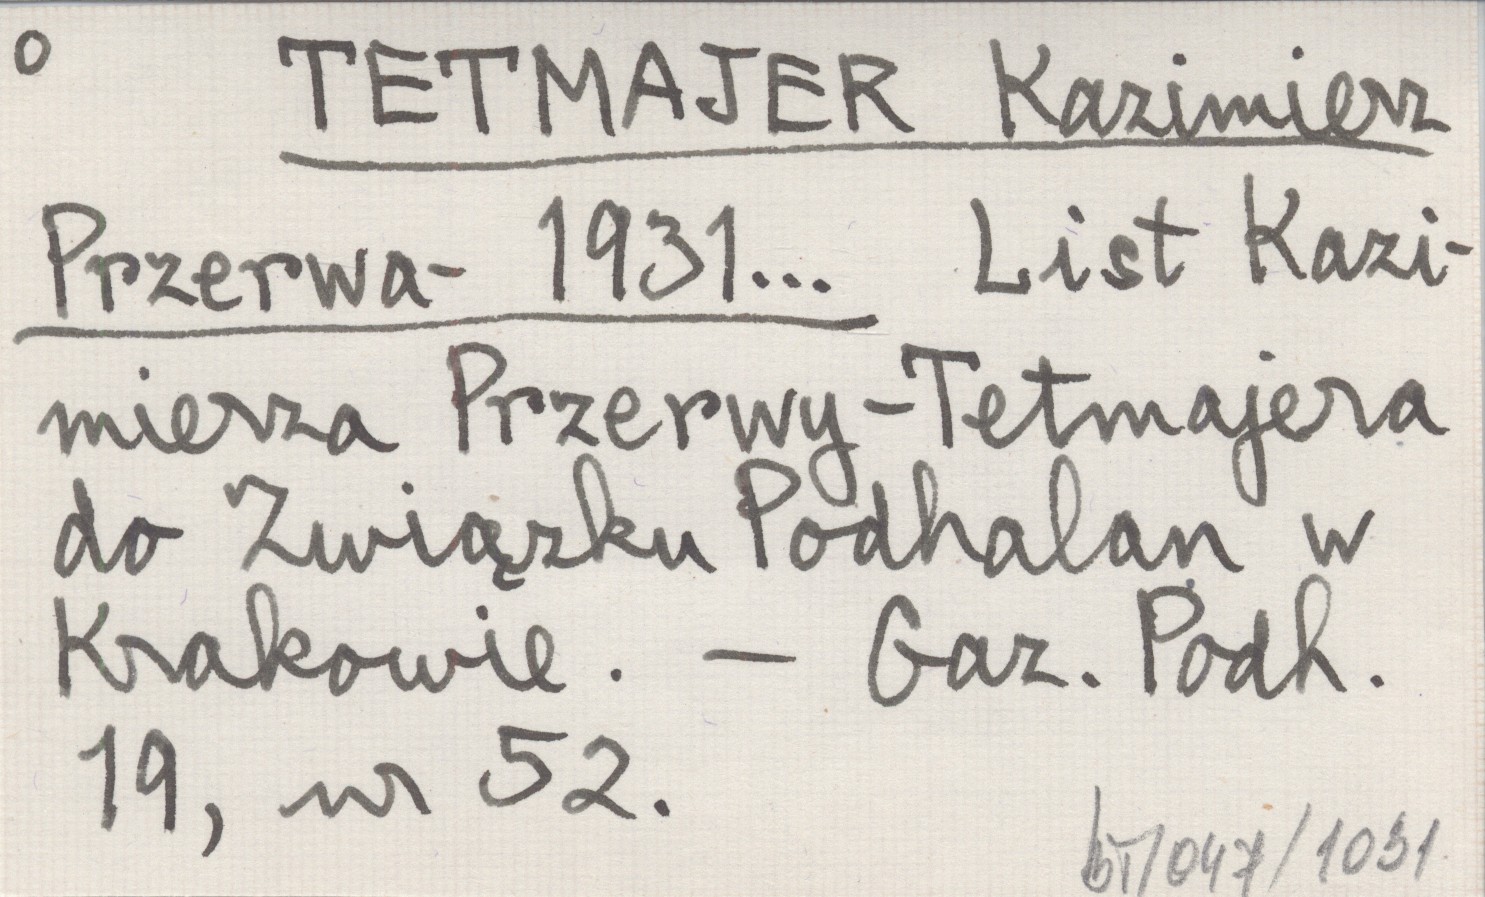 o TETMAJER Kazimierz
Przerwa- 1931... List Kazi-
mierza Przerwy-Tetmajera
do Związku Podhalan w
Krakowie. — Gaz. Podh.
19, nr 52.
bT/047/1031